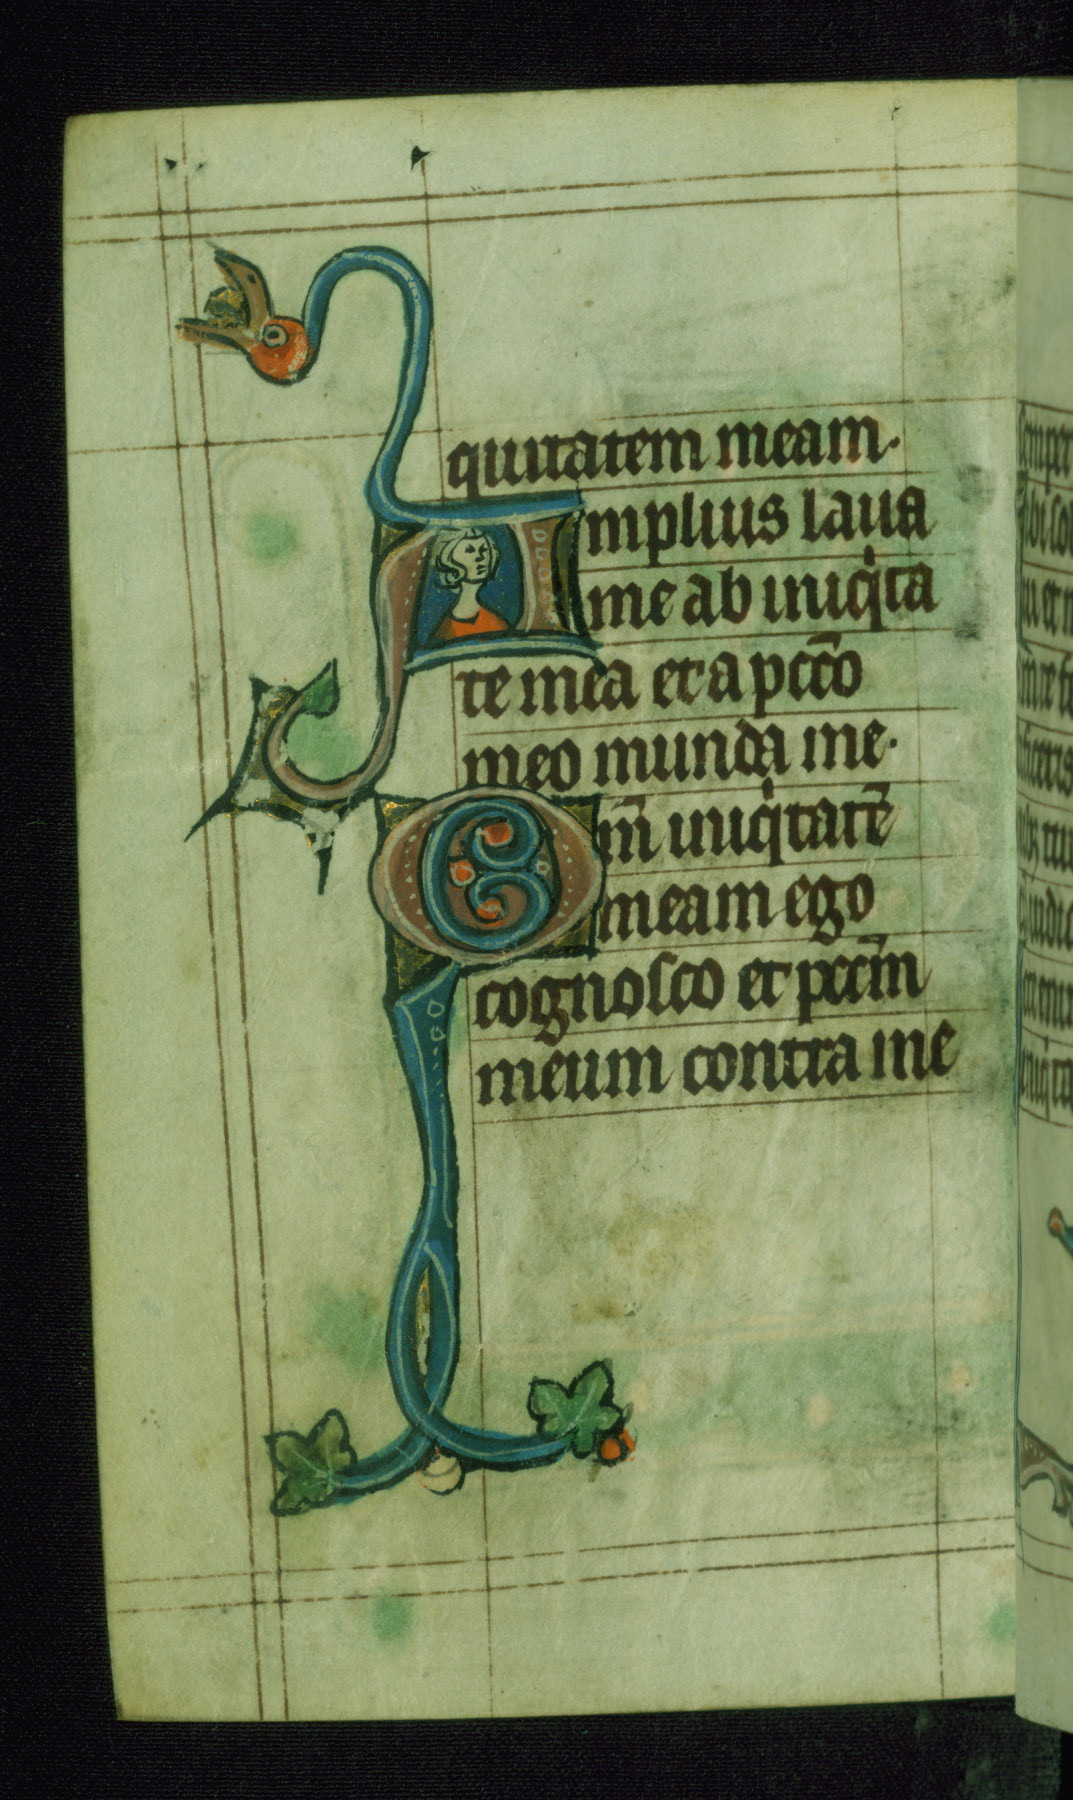 quitatem meam.
Amplius laua
me ab iniqͥta
te mea et a pcc̄o
meo munda me.
Qm̄ iniqͥtatē
meam ego
cognosco et pccm̄
meum contra me